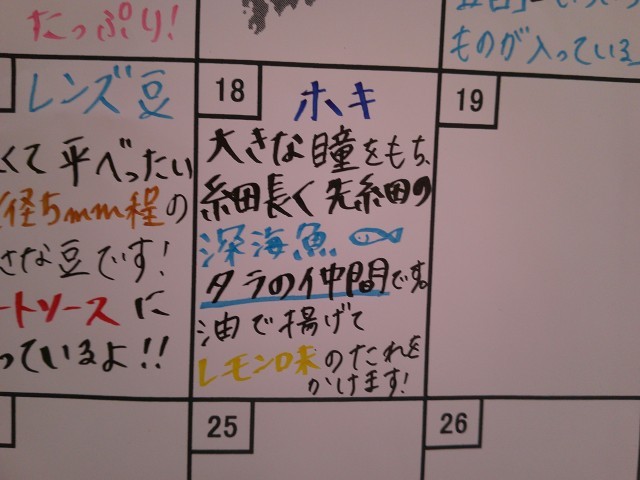 たっぷり!
ものが入っている
レンズ豆
くて平べったい
径5mm程の
さな豆です!
ートソースに
っているよ!!
18
ホキ
大きな瞳をもち、
細長く先細の
深海魚
タラの仲間です。
油で揚げて
レモン味のたれを
かけます!
19
25
26